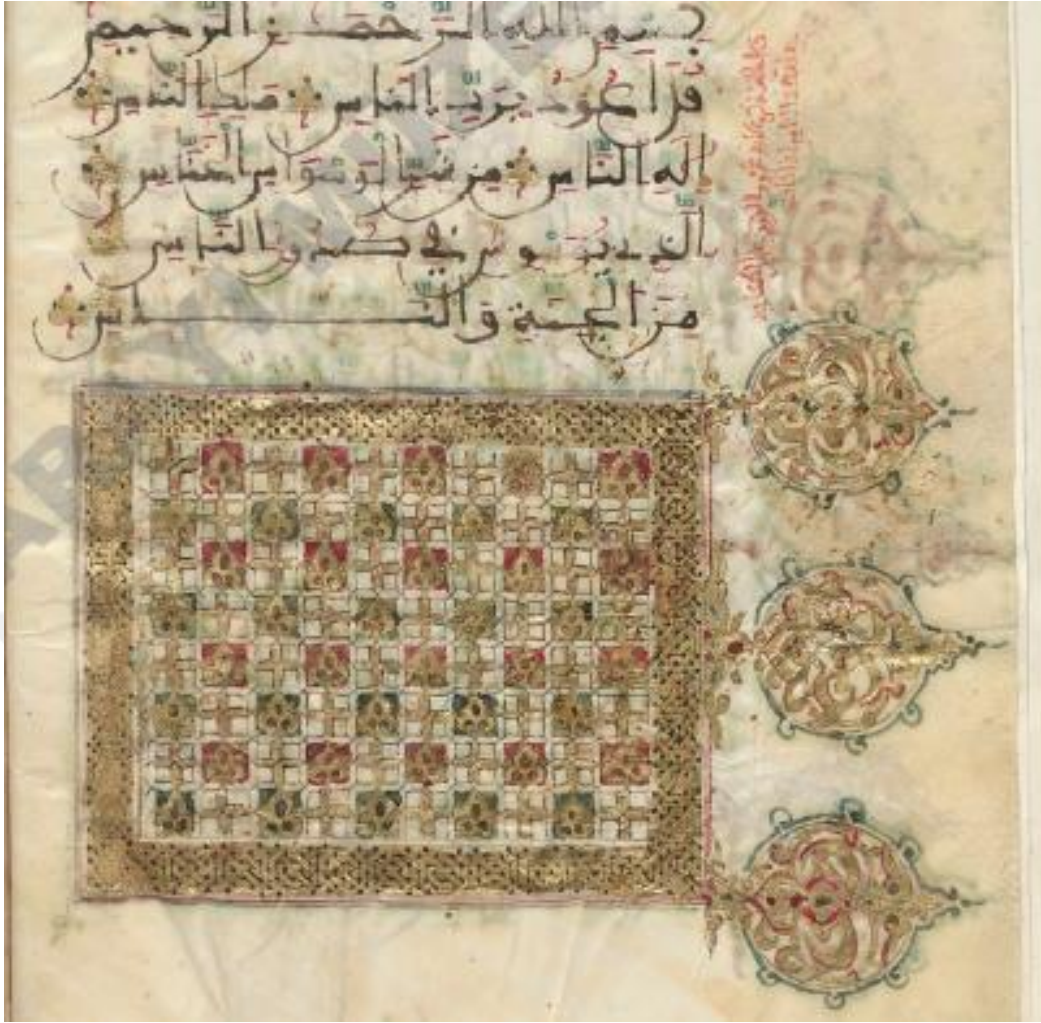 بسم الله الرحمن الرحيم
قل أعوذ برب الناس ملك الناس
إله الناس من شر الوسواس الخناس
الذي يوسوس في صدور الناس
من الجنة والناس